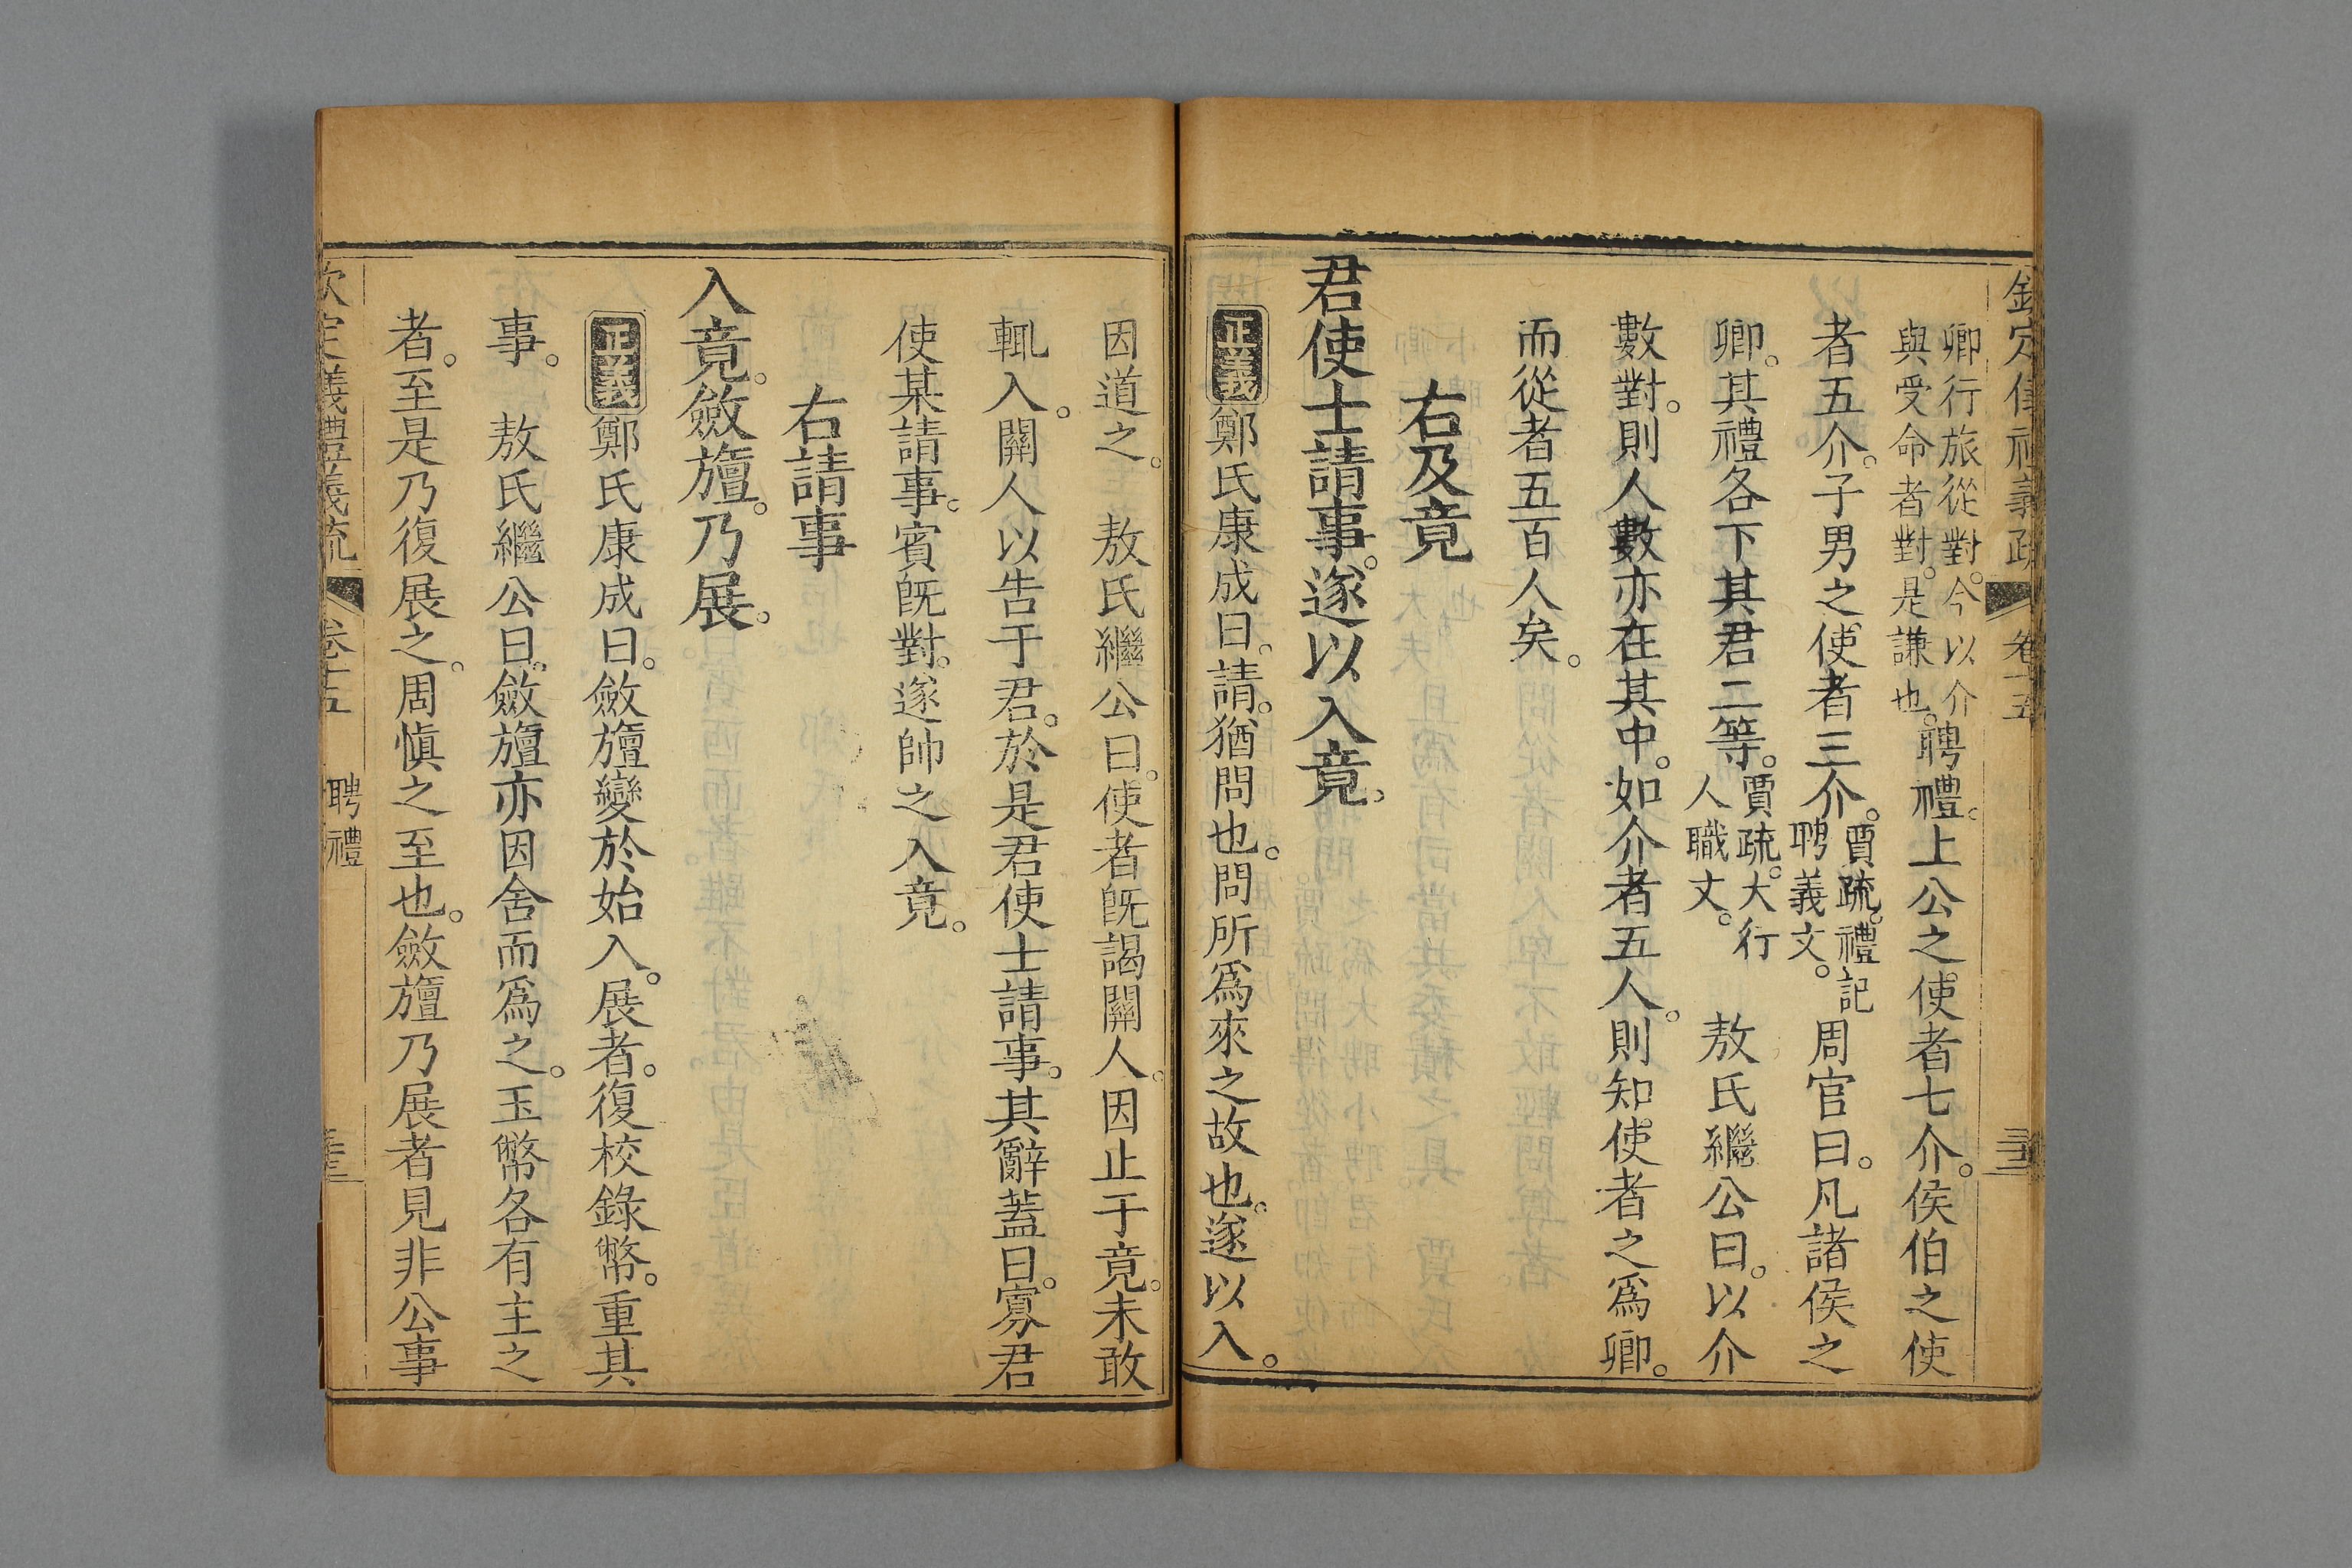 欽定儀禮義疏　卷十五
卿行旅從對。今以介
與受命者對。是謙也。
聘禮。上公之使者七介。侯伯之使
者五介。子男之使者三介。
賈疏。禮記
聘義文。
周官曰。凡諸侯之
卿。其禮各下其君二等。
賈疏。大行
人職文。
敖氏繼公曰。以介
數對。則人數亦在其中。如介者五人。則知使者之爲卿。
而從者五百人矣。
右及竟
君使士請事。遂以入竟。
正義鄭氏康成曰。請。猶問也。問所爲來之故也。遂以入。
因道之。　敖氏繼公曰。使者旣謁關人。因止于竟。未敢
輒入。關人以告于君。於是君使士請事。其辭蓋曰。寡君
使某請事。賓旣對。遂帥之入竟。
右請事
入竟。斂旜。乃展。
正義鄭氏康成曰。斂旜變於始入。展者。復校錄幣。重其
事。　敖氏繼公曰。斂旜亦因舍而爲之。玉幣各有主之
者。至是乃復展之。周愼之至也。斂旜乃展者見非公事
欽定義禮義疏　卷十五　聘禮